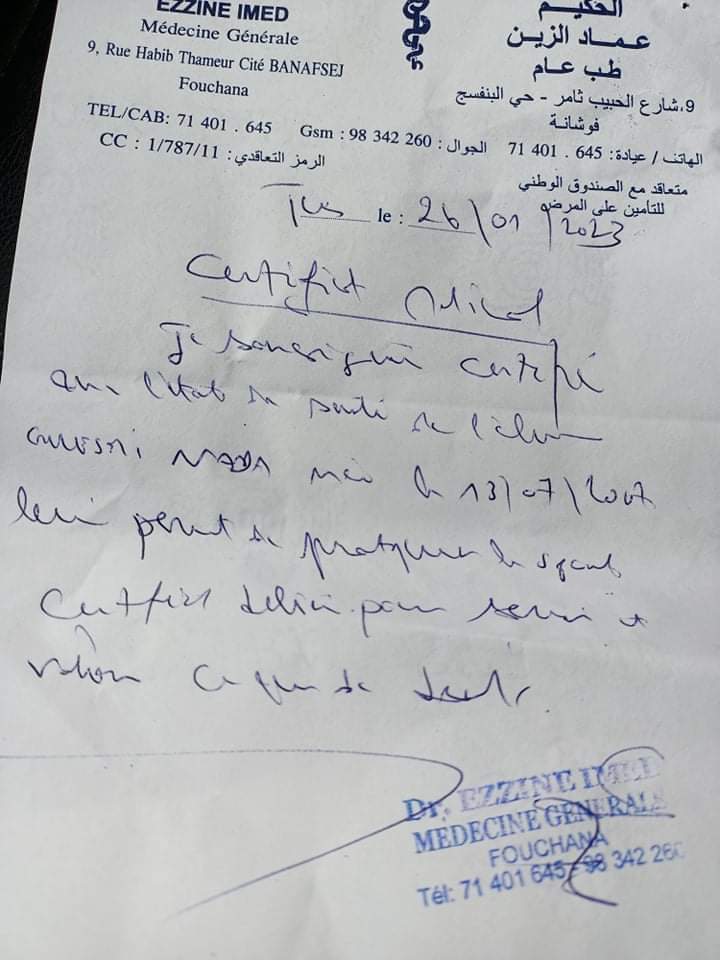 EZZINE IMED
Médecine Générale
9, Rue Habib Thameur Cité BANAFSEJ
Fouchana
TEL/CAB: 71 401 . 645 Gsm : 98 342 260
CC : 1/787/11 : الرمز التعاقدي
الحكيم
عماد الزين
طب عام
9، شارع الحبيب ثامر - حي البنفسج
فوشانة
الهاتف / عيادة: 645 . 401 71 الجوال :
متعاقد مع الصندوق الوطني
للتأمين على المرض
le : 26/01/2023
Certificat Médical
Je soussigné certifie
que l'état de santé de l'élève
NADA née le 13/07/2007
lui permet de pratiquer le sport
Certificat délivré pour servir et
valoir ce que de droit.
Dr. EZZINE IMED
MEDECINE GENERALE
FOUCHANA
Tél: 71 401 645 - 98 342 260